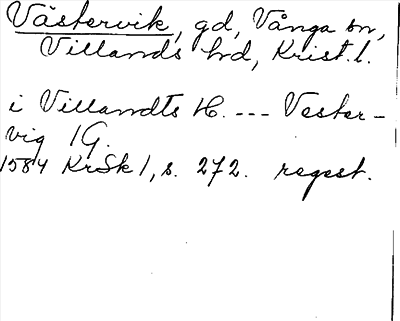 Västervik, gd, Vånga sn,
Villands hd, Krist. l.
i Villandts H. --- Vester-
vig 1G.
1584 KrSk 1, s. 272. regest.